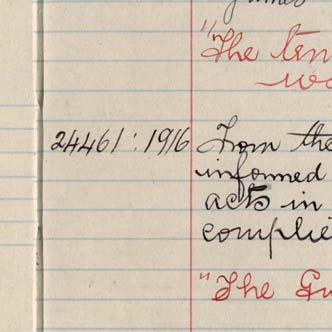 James
"The ten
wo
24461:1916 From the
informed
acts in
complie
"The Gu